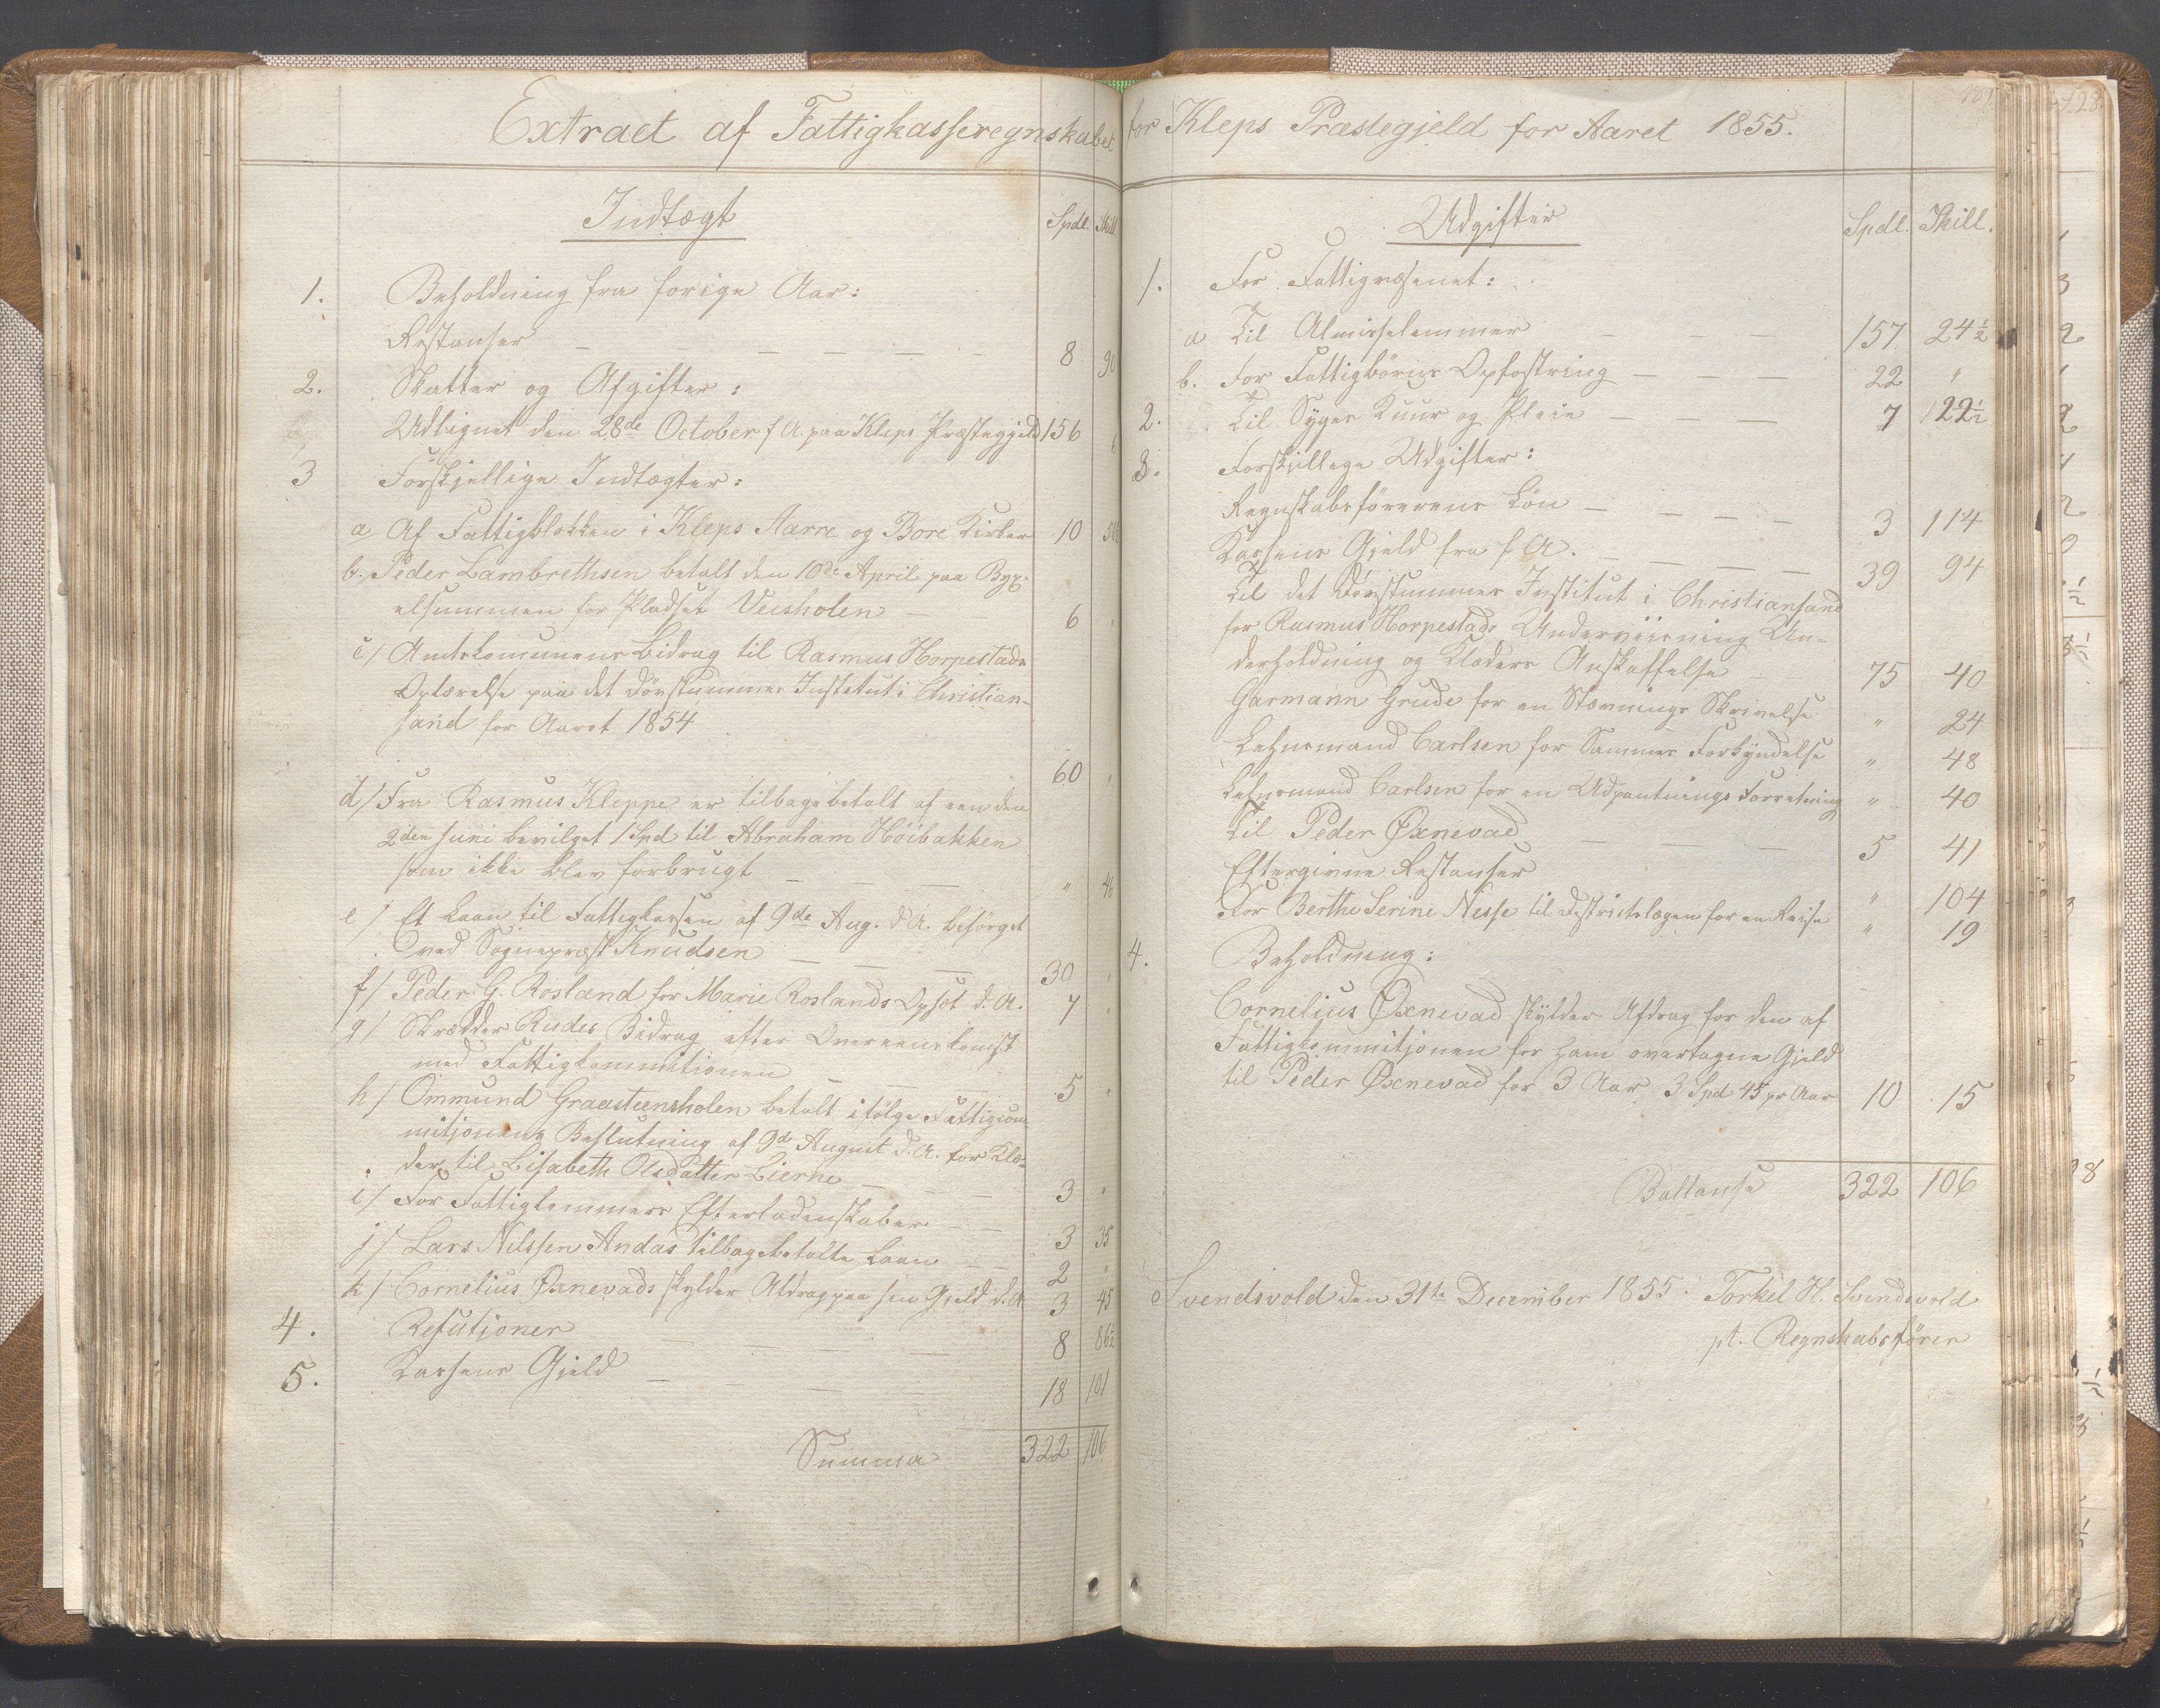 Extract af Fattigkasseregnskabet for Kleps Præstegjeld for Aaret 1855.
Indtægt
Spdl. Skill
1. Beholdning fra forige Aar:
Restanser 8 90
2. Skatter og Afgifter:
Udlignet den 28de October f A. paa Kleps Præstegjeld 156 6
3 Forskjellige Indtægter:
a Af Fattigblokken i Kleps Aarre og Bore Kirker 10
b., Peder Lambrethsen betalt den 10de April paa Byg-
elsummen for Pladset Veisholen 6 "
c/ Amtskomunens Bidrag til Rasmus Horpestads
Oplærelse paa det Døvstummes Institut i Christian-
sand for Aaret 1854
60 "
d/ Fra Rasmus Kleppe er tilbagebetalt af een den
2den Juni bevilget 1 Spd til Abraham Höibakken
som ikke blev forbrugt " 46
e/ Et Laan til Fattigkassen af 9de Aug. d A. besörget
ved Sognepræst Knudsen 30 "
f/ Peder G. Rosland for Marie Roslands Opsöt d. A. 7 "
g/ Skrædder Rudes Bidrag efter Overeenskomst
med Fattigkommitionen 5 "
h/ Ommund Graasteensholen betalt ifölge Fattigcom-
mitjonens Beslutning af 9de August d. A. for Klæ-
der til Lisabeth Olsdatter Lierhe 3 "
i/ For Fattiglemmers Efterladenskaber 3 35
j/ Lars Nilssen Andas tilbagebetalte Laan 2 "
k/ Cornelius Øxnevads skylder Afdrag paa sin Gjeld d. A 3 45
4. Refutjoner 8 86½
5. Kassens Gjeld 18 101
Summa 322 106
Udgifter
Spdl. Skill.
1. For Fattigvæsenet:
a Til Almisselemmer 157 24½
b. For Fattigbörns Opfostring 22 "
2. Til Syges Kuur og Pleie 7 122½
3. Forskjellege Udgifter:
Regnskabsförerens Løn 3 114
Kassens Gjeld fra f A. 39 94
Til det Døvstummes Institut i Christiansand
for Rasmus Horpestads Underviisning Un-
derholdning og Klæders Anskaffelse 75 40
Garmann Grude for en Stævnings Skrivelse " 24
Lehnsmand Carlsen for Sammes Forkyndelse " 48
Lehnsmand Carlsen for en Udpantnings Forretning " 40
Til Peder Øxnevad 5 41
Eftergivne Restanser " 104
For Berthe Serine Nesse til Distriktslægen for en Reise " 19
4. Beholdning:
Cornelius Øxnevad skylder Afdrag for den af
Fattigkommitjonen for ham overtagne Gjeld
til Peder Øxnevad for 3 Aar 3 Spd 45 pr Aar 10 15
Ballanse 322 106
Svendsvold den 31te December 1855. Torkel H. Svendsvold
pt. Regnskabsförer